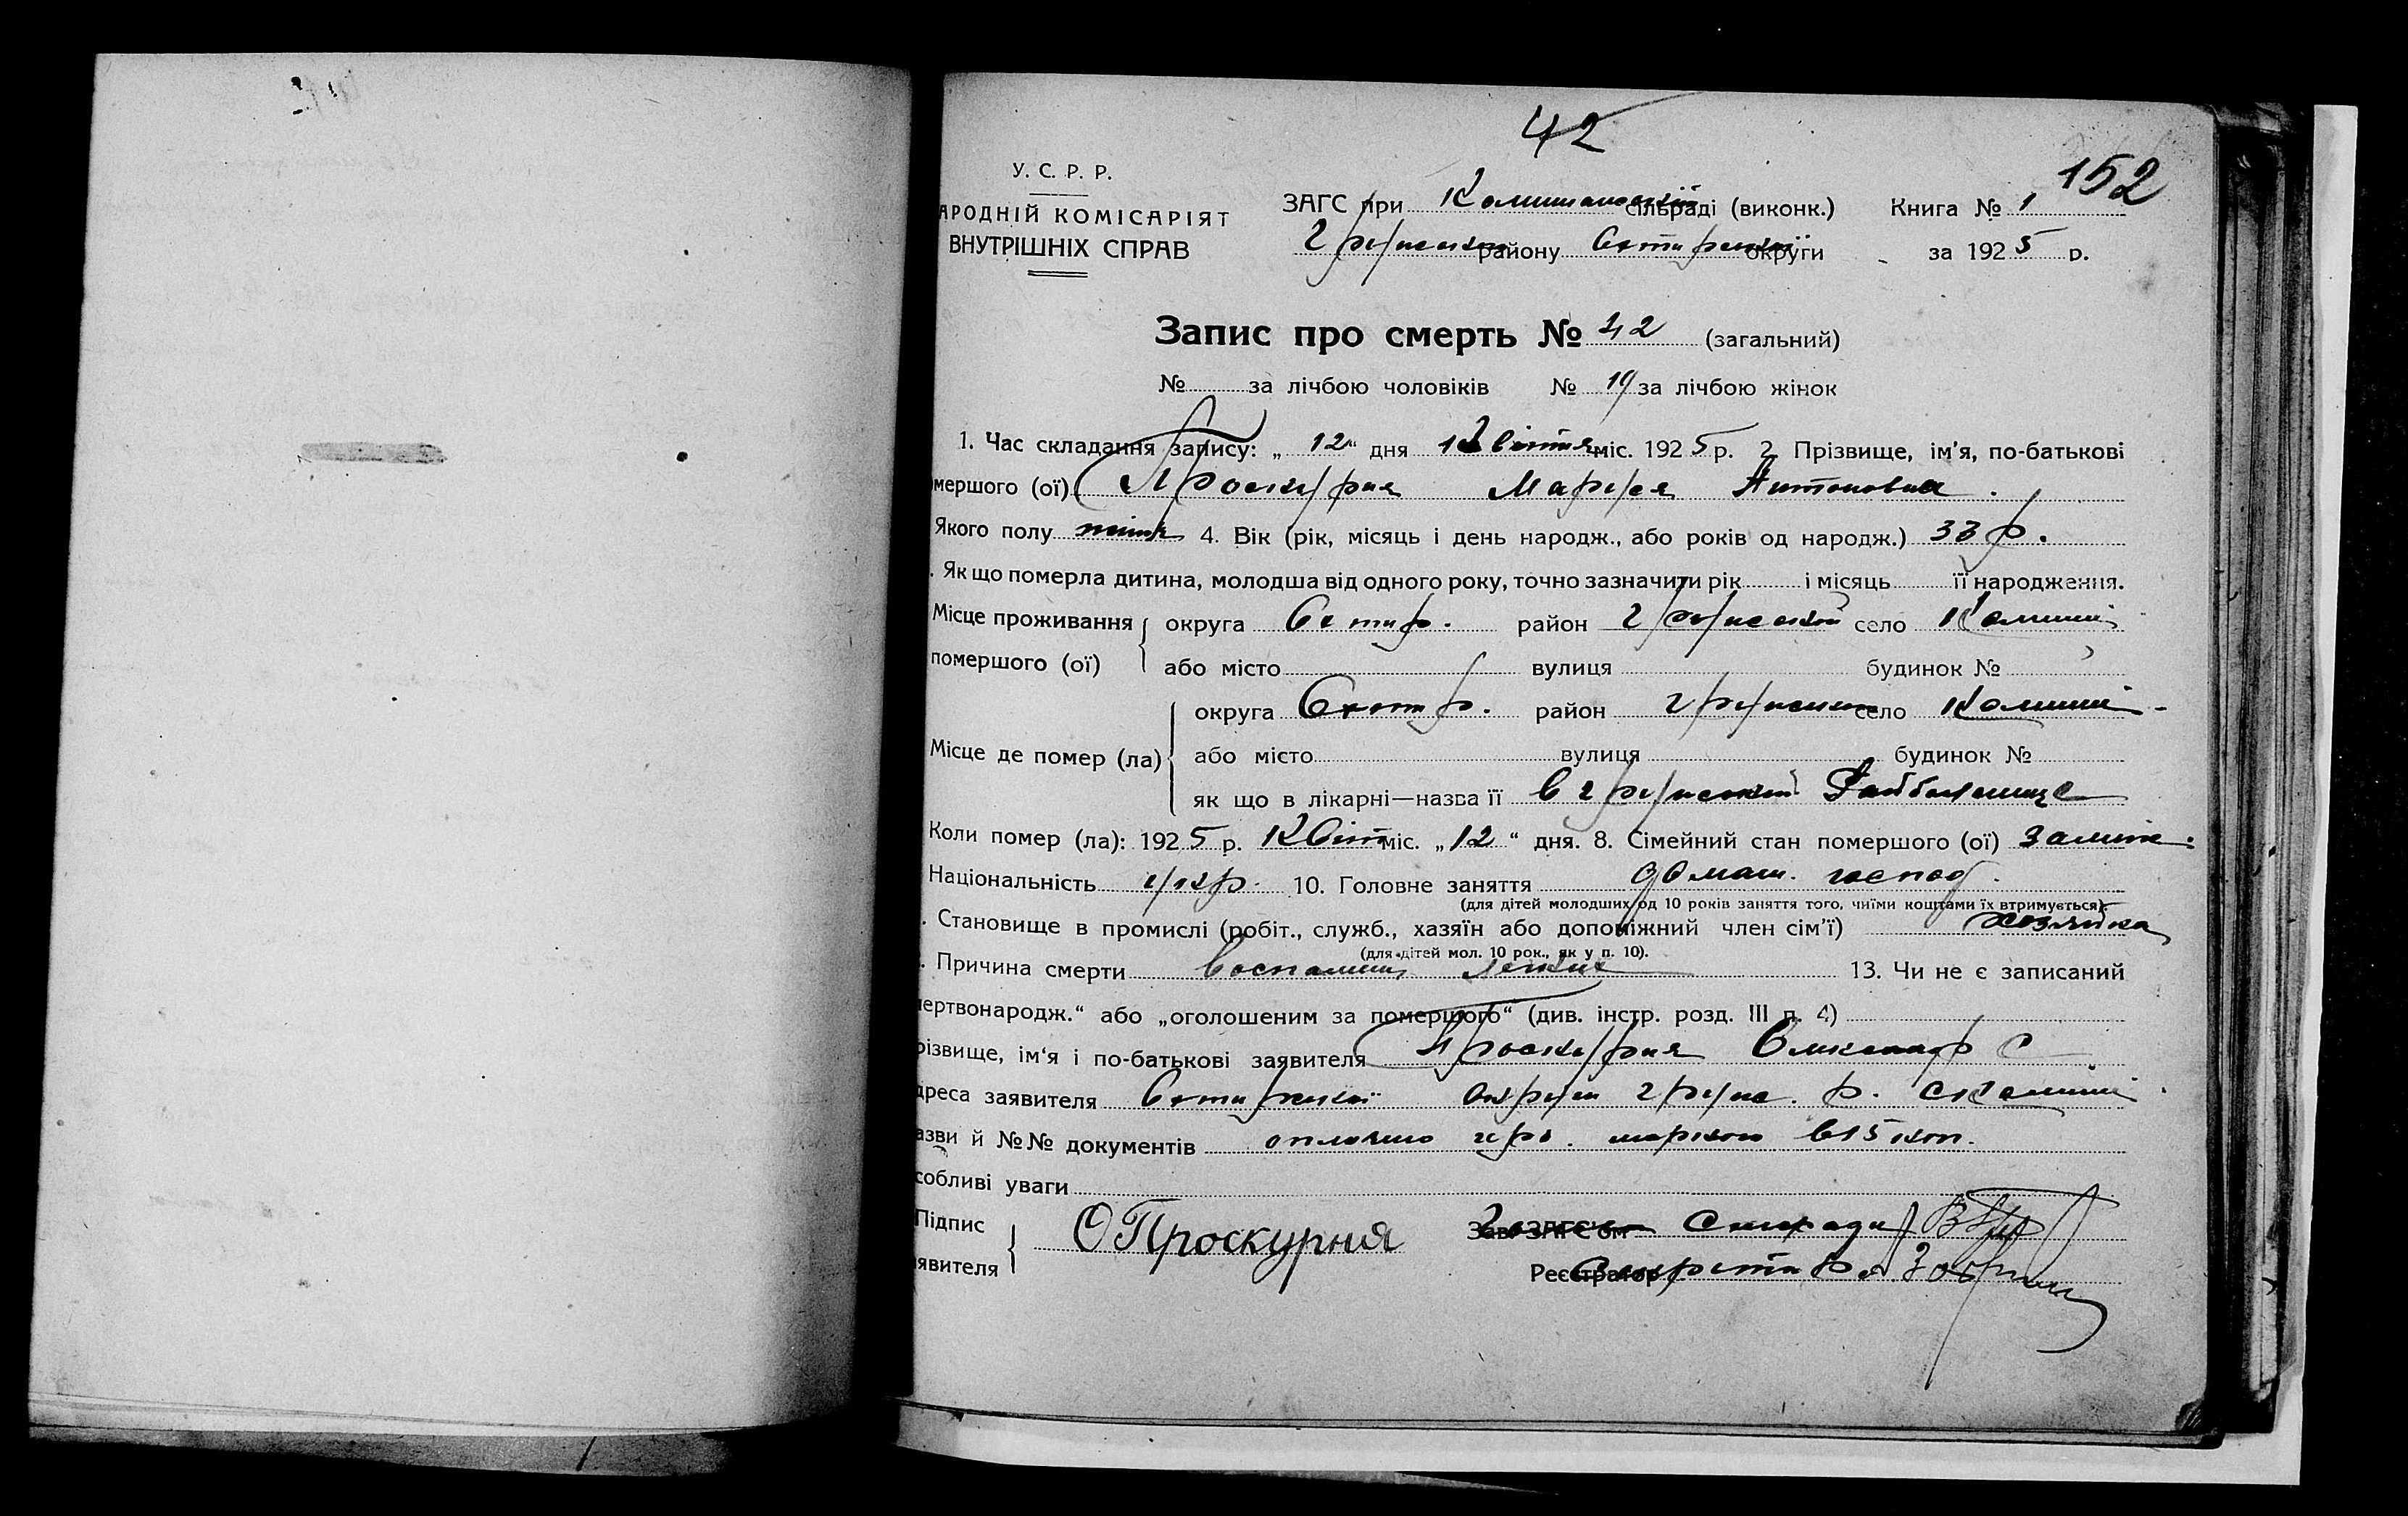 42
152
У. С. Р. Р.
АРОДНІЙ КОМІСАРІЯТ
ВНУТРІШНІХ СПРАВ
ЗАГС при сільраді (виконк.) Книга № 1
Грунський району округи за 1925 р.
Запис про смерть № 42 (загальний)
№ за лічбою чоловіків № 19 за лічбою жінок
1. Час складання запису: „ 12 “ дня Квітня міс. 1925 р. 2. Прізвище, ім'я, по-батькові
мершого (ої) Проскурня Маруся Антоновна.
Якого полу жінк 4. Вік (рік, місяць і день народж., або років од народж.) 33 р.
. Як що померла дитина, молодша від одного року, точно зазначити рік і місяць її народження.
Місце проживання
помершого (ої)
округа Охтир. район Грунський село Комиші
або місто вулиця будинок №
Місце де помер (ла)
округа Охтир. район Грунський село Комиші
або місто вулиця будинок №
як що в лікарні—назва її в Грунській Райболнице
Коли помер (ла): 1925 р. Квіт міс. „12“ дня. 8. Сімейний стан помершого (ої) Заміж.
Національність укр. 10. Головне заняття домаш. господ.
(для дітей молодших од 10 років заняття того, чиїми коштами їх втримується).
. Становище в промислі (робіт., служб., хазяїн або допоміжний член сім'ї) хозяйка
(для дітей мол. 10 рок., як у п. 10).
. Причина смерти Воспалении Легких 13. Чи не є записаний
ертвонародж.“ або „оголошеним за помершого“ (див. інстр. розд. III п. 4)
різвище, ім'я і по-батькові заявителя Проскурня Олександ С
дреса заявителя Охтирської округи Грунс. р. с Комиші
азви й №№ документів оплачено герб. маркою в 15 коп.
собливі уваги
Підпис
явителя
ОПроскурня
Зав. ЗАГС'ом
Реєстратор